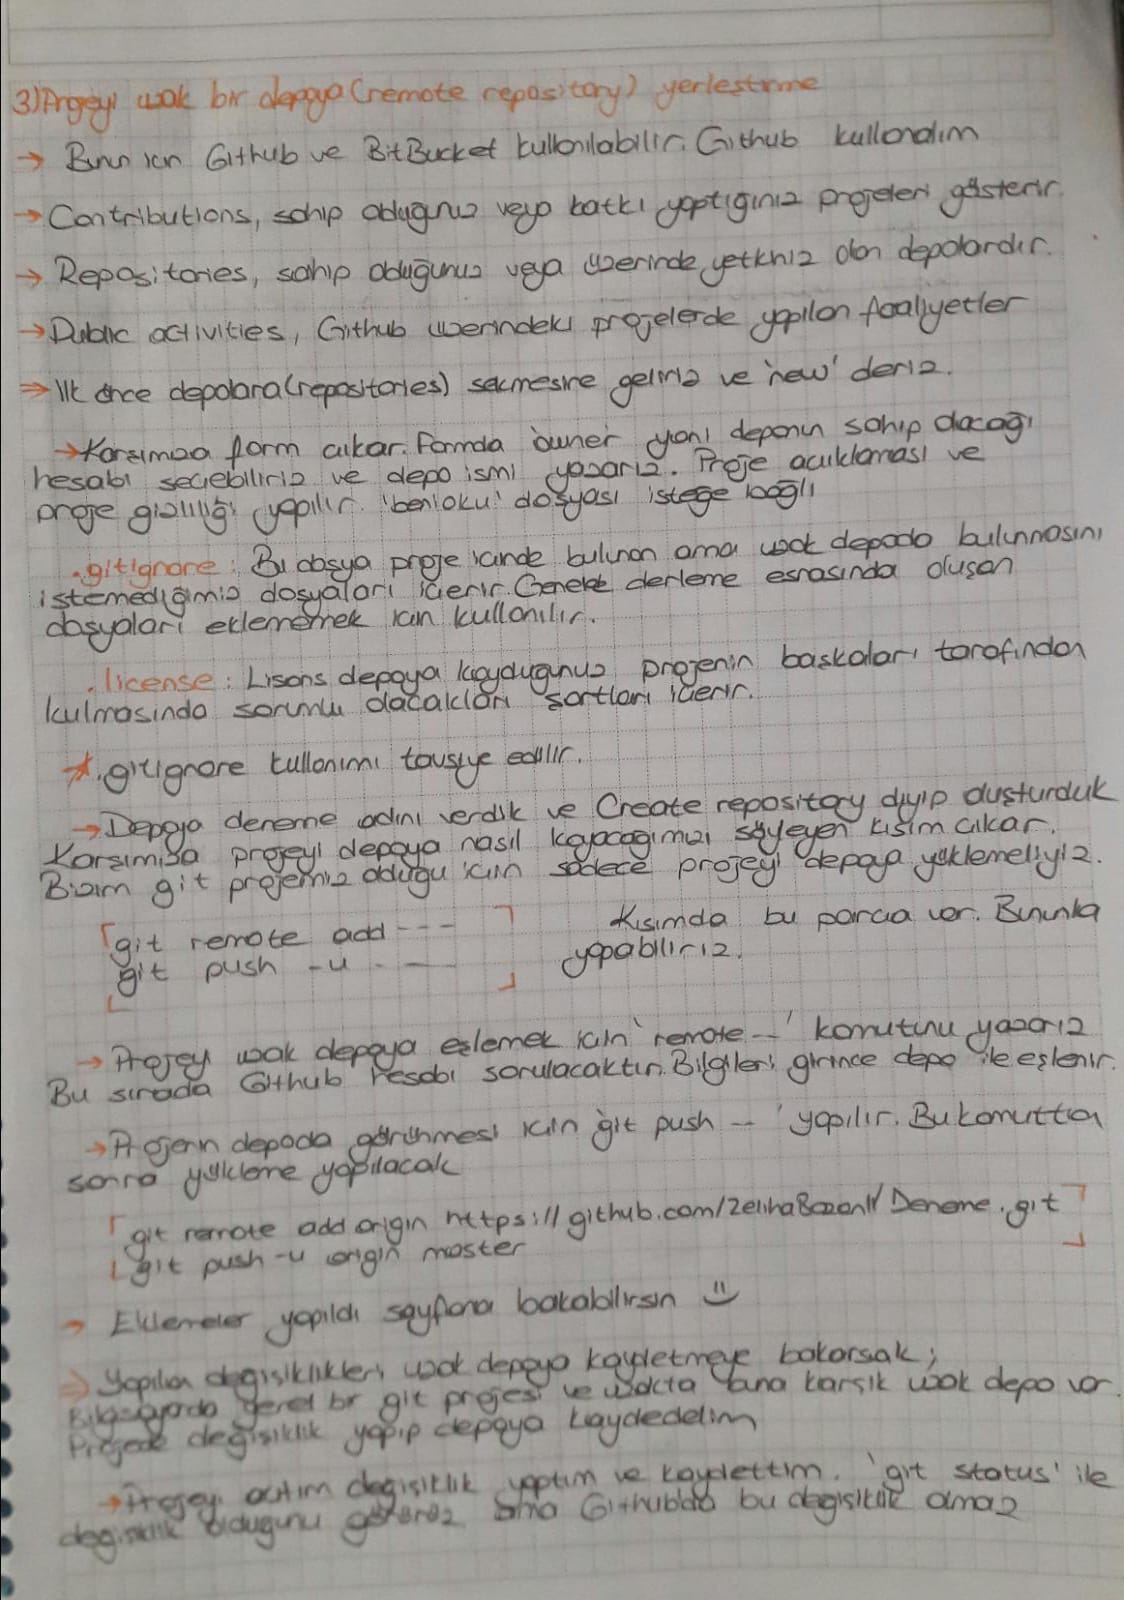 3) Projeyi uzak bir depoya (remote repository) yerleştirme
→ Bunun için Github ve BitBucket kullanılabilir. Github kullanalım
→ Contributions, sahip olduğunuz veya katkı yaptığınız projeleri gösterir.
→ Repositories, sahip olduğunuz veya üzerinde yetkiniz olan depolardır.
→ Public activities, Github üzerindeki projelerde yapılan faaliyetler
⇒ İlk önce depolara (repositories) sekmesine geliriz ve 'new' deriz.
→ Karşımıza form çıkar. Formda 'owner' yani deponun sahip olacağı
hesabı seçebiliriz ve depo ismi yazarız. Proje açıklaması ve
proje gizliliği yapılır. 'benioku' dosyası isteğe bağlı
.gitignore : Bu dosya proje içinde bulunan ama uzak depoda bulunmasını
istemediğimiz dosyaları içerir. Genelde derleme esnasında oluşan
dosyaları eklememek için kullanılır.
.license : Lisans depoya koyduğunuz projenin başkaları tarafından
kulmasında sorumlu olacakları şartları içerir.
* .gitignore kullanımı tavsiye edilir.
→ Depoya deneme adını verdik ve Create repository diyip oluşturduk
Karşımıza projeyi depoya nasıl koyacağımızı söyleyen kısım çıkar.
Bizim git projemiz olduğu için sadece projeyi depoya yüklemeliyiz.
git remote add --- Kısımda bu parça var. Bununla
git push -u --- yapabiliriz.
→ Projeyi uzak depoya eşlemek için 'remote --' komutunu yazarız
Bu sırada Github hesabı sorulacaktır. Bilgileri girince depo ile eşlenir.
→ Projenin depoda görünmesi için 'git push --' yapılır. Bu komuttan
sonra yükleme yapılacak
git remote add origin https://github.com/ZelihaBozan11/Deneme.git
git push -u origin master
→ Eklemeler yapıldı sayfana bakabilirsin ☺
⇒ Yapılan değişiklikleri uzak depoya kaydetmeye bakarsak;
Bilgisayarda yerel bir git projesi ve uzakta buna karşılık uzak depo var.
Projede değişiklik yapıp depoya kaydedelim
→ Projeyi açtım değişiklik yaptım ve kaydettim. 'git status' ile
değişiklik olduğunu görürüz ama Github'da bu değişiklik olmaz